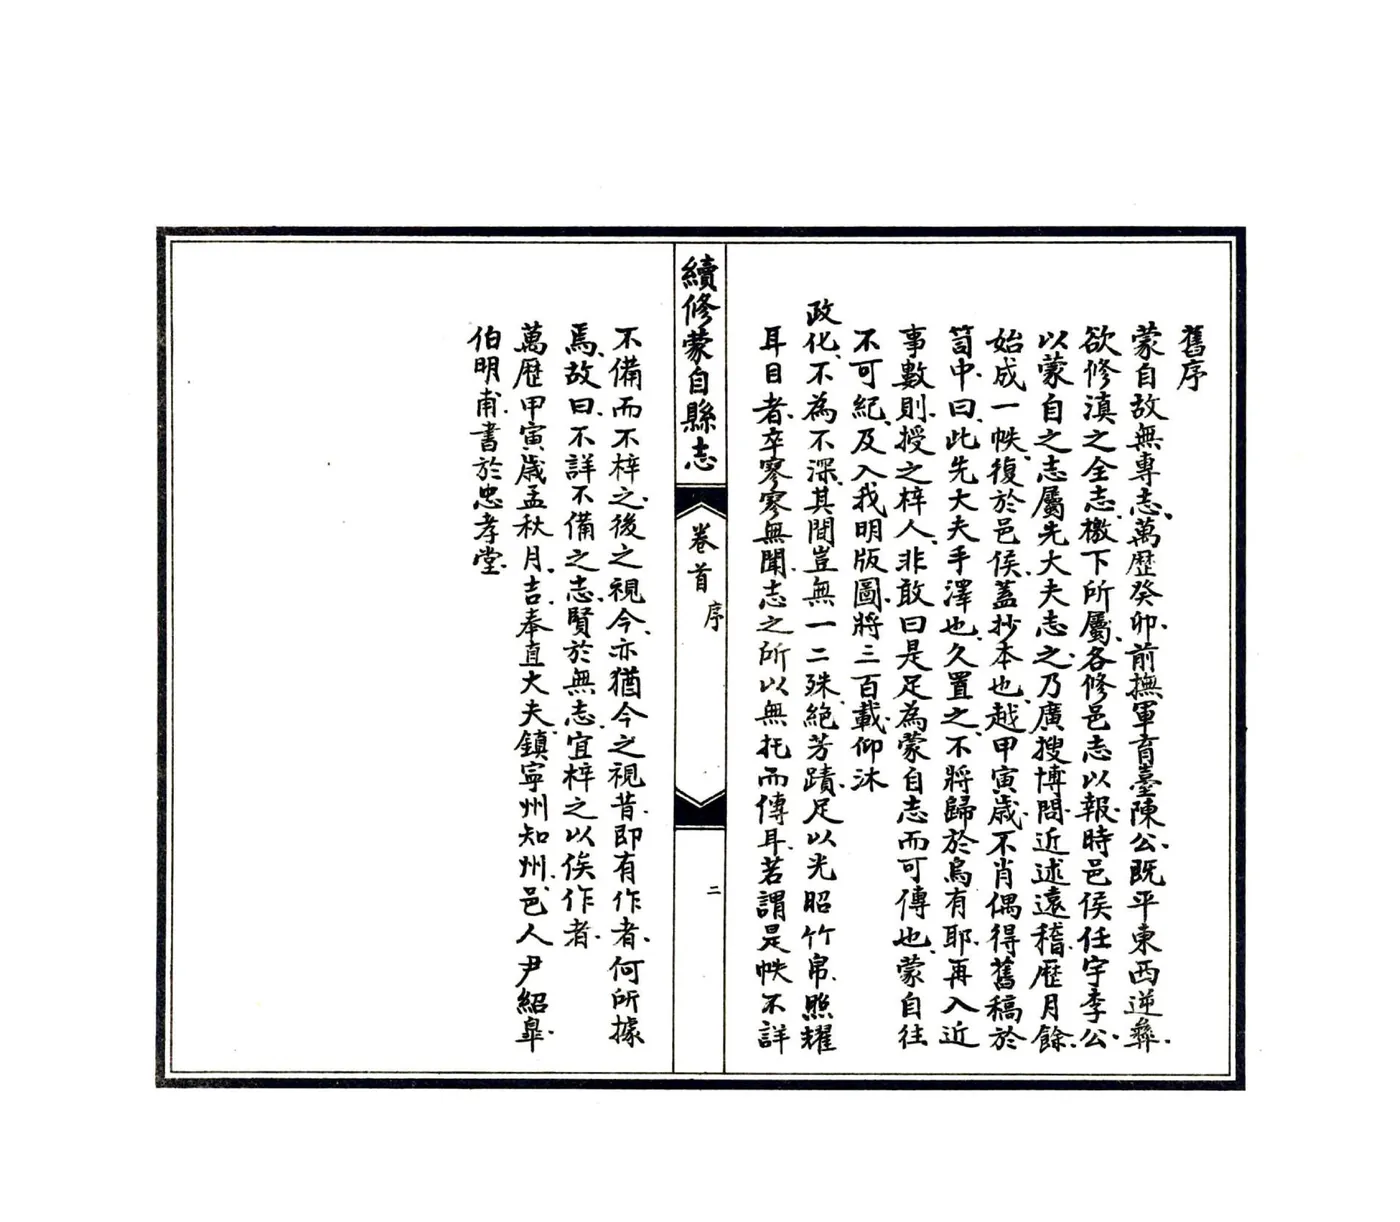 舊序
蒙自故無專志、萬歷癸卯、前撫軍育臺陳公、既平東西逆彝、
欲修滇之全志、檄下所屬、各修邑志以報、時邑侯任宇季公、
以蒙自之志屬先大夫志之、乃廣搜博問、近述遠稽、歷月餘、
始成一帙、復於邑侯、蓋抄本也、越甲寅歲、不肖偶得舊稿於
笥中、曰、此先大夫手澤也、久置之、不將歸於烏有耶、再入近
事數則、授之梓人、非敢曰是足為蒙自志而可傳也、蒙自往
不可紀、及入我明版圖、將三百載、仰沐
政化、不為不深、其間豈無一二殊絕芳蹟、足以光昭竹帛、照耀
耳目者、卒寥寥無聞、志之所以無托而傳耳、若謂是帙不詳
續修蒙自縣志
卷首
序
二
不備而不梓之、後之視今、亦猶今之視昔、即有作者、何所據
焉、故曰、不詳不備之志、賢於無志、宜梓之以俟作者、
萬歷甲寅歲孟秋月、吉奉直大夫、鎮寧州知州、邑人尹紹皐、
伯明甫、書於忠孝堂、